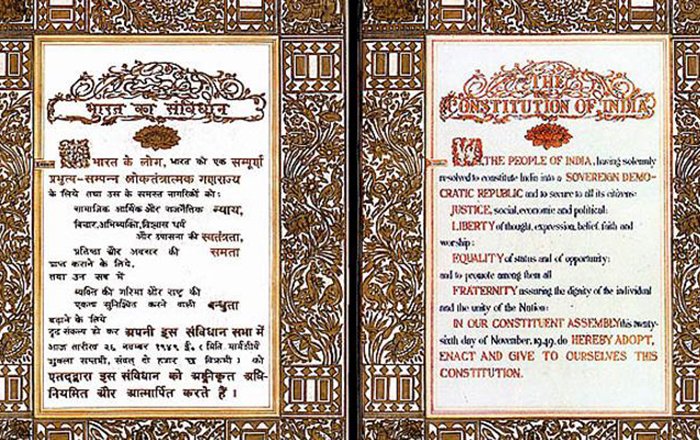 भारत का संविधान
हम भारत के लोग, भारत को एक सम्पूर्ण
प्रभुत्व-सम्पन्न लोकतंत्रात्मक गणराज्य
बनाने के लिये तथा उस के समस्त नागरिकों को:
सामाजिक आर्थिक और राजनैतिक न्याय,
विचार, अभिव्यक्ति, विश्वास धर्म
और उपासना की स्वतंत्रता,
प्रतिष्ठा और अवसर की समता
प्राप्त कराने के लिये,
तथा उन सब में
व्यक्ति की गरिमा और राष्ट्र की
एकता सुनिश्चित करने वाली बन्धुता
बढ़ाने के लिये
दृढ़ संकल्प हो कर अपनी इस संविधान सभा में
आज तारीख २६ नवम्बर १९४९ ई. (मिति मार्गशीर्ष
शुक्ला सप्तमी, संवत् दो हज़ार छ विक्रमी) को
एतद्द्वारा इस संविधान को अङ्गीकृत अधि-
नियमित और आत्मार्पित करते हैं।
THE
CONSTITUTION OF INDIA
WE, THE PEOPLE OF INDIA, having solemnly
resolved to constitute India into a SOVEREIGN DEMO-
CRATIC REPUBLIC and to secure to all its citizens:
JUSTICE, social, economic and political;
LIBERTY of thought, expression, belief, faith and
worship;
EQUALITY of status and of opportunity;
and to promote among them all
FRATERNITY assuring the dignity of the individual
and the unity of the Nation;
IN OUR CONSTITUENT ASSEMBLY this twenty-
sixth day of November, 1949, do HEREBY ADOPT,
ENACT AND GIVE TO OURSELVES THIS
CONSTITUTION.